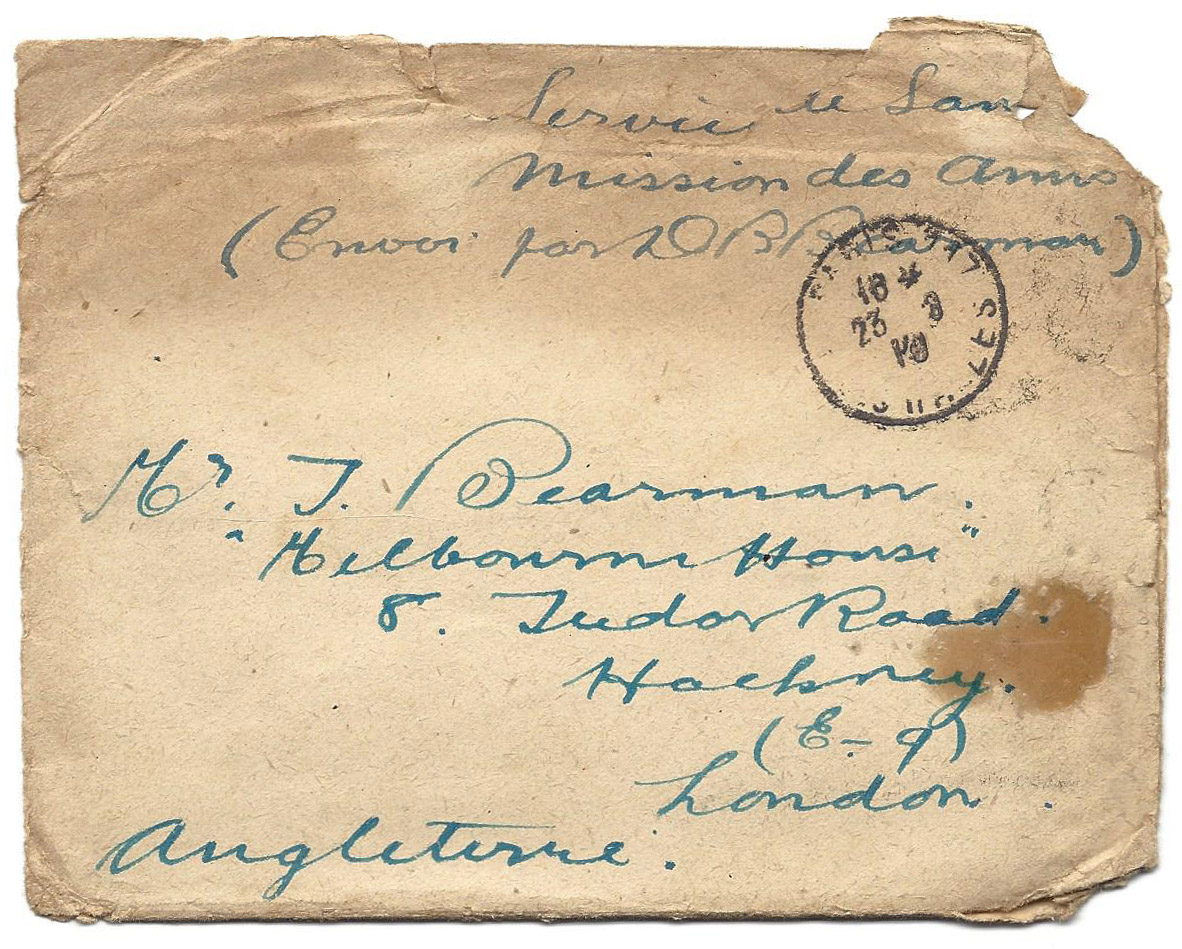 Service de San
Mission des Amis
(Envoi par D R Bearman)
18 *
23 3
Mr. T. Bearman.
"Melbourne House"
8. Tudor Road.
Hackney.
(E-9)
London.
Angleterre.